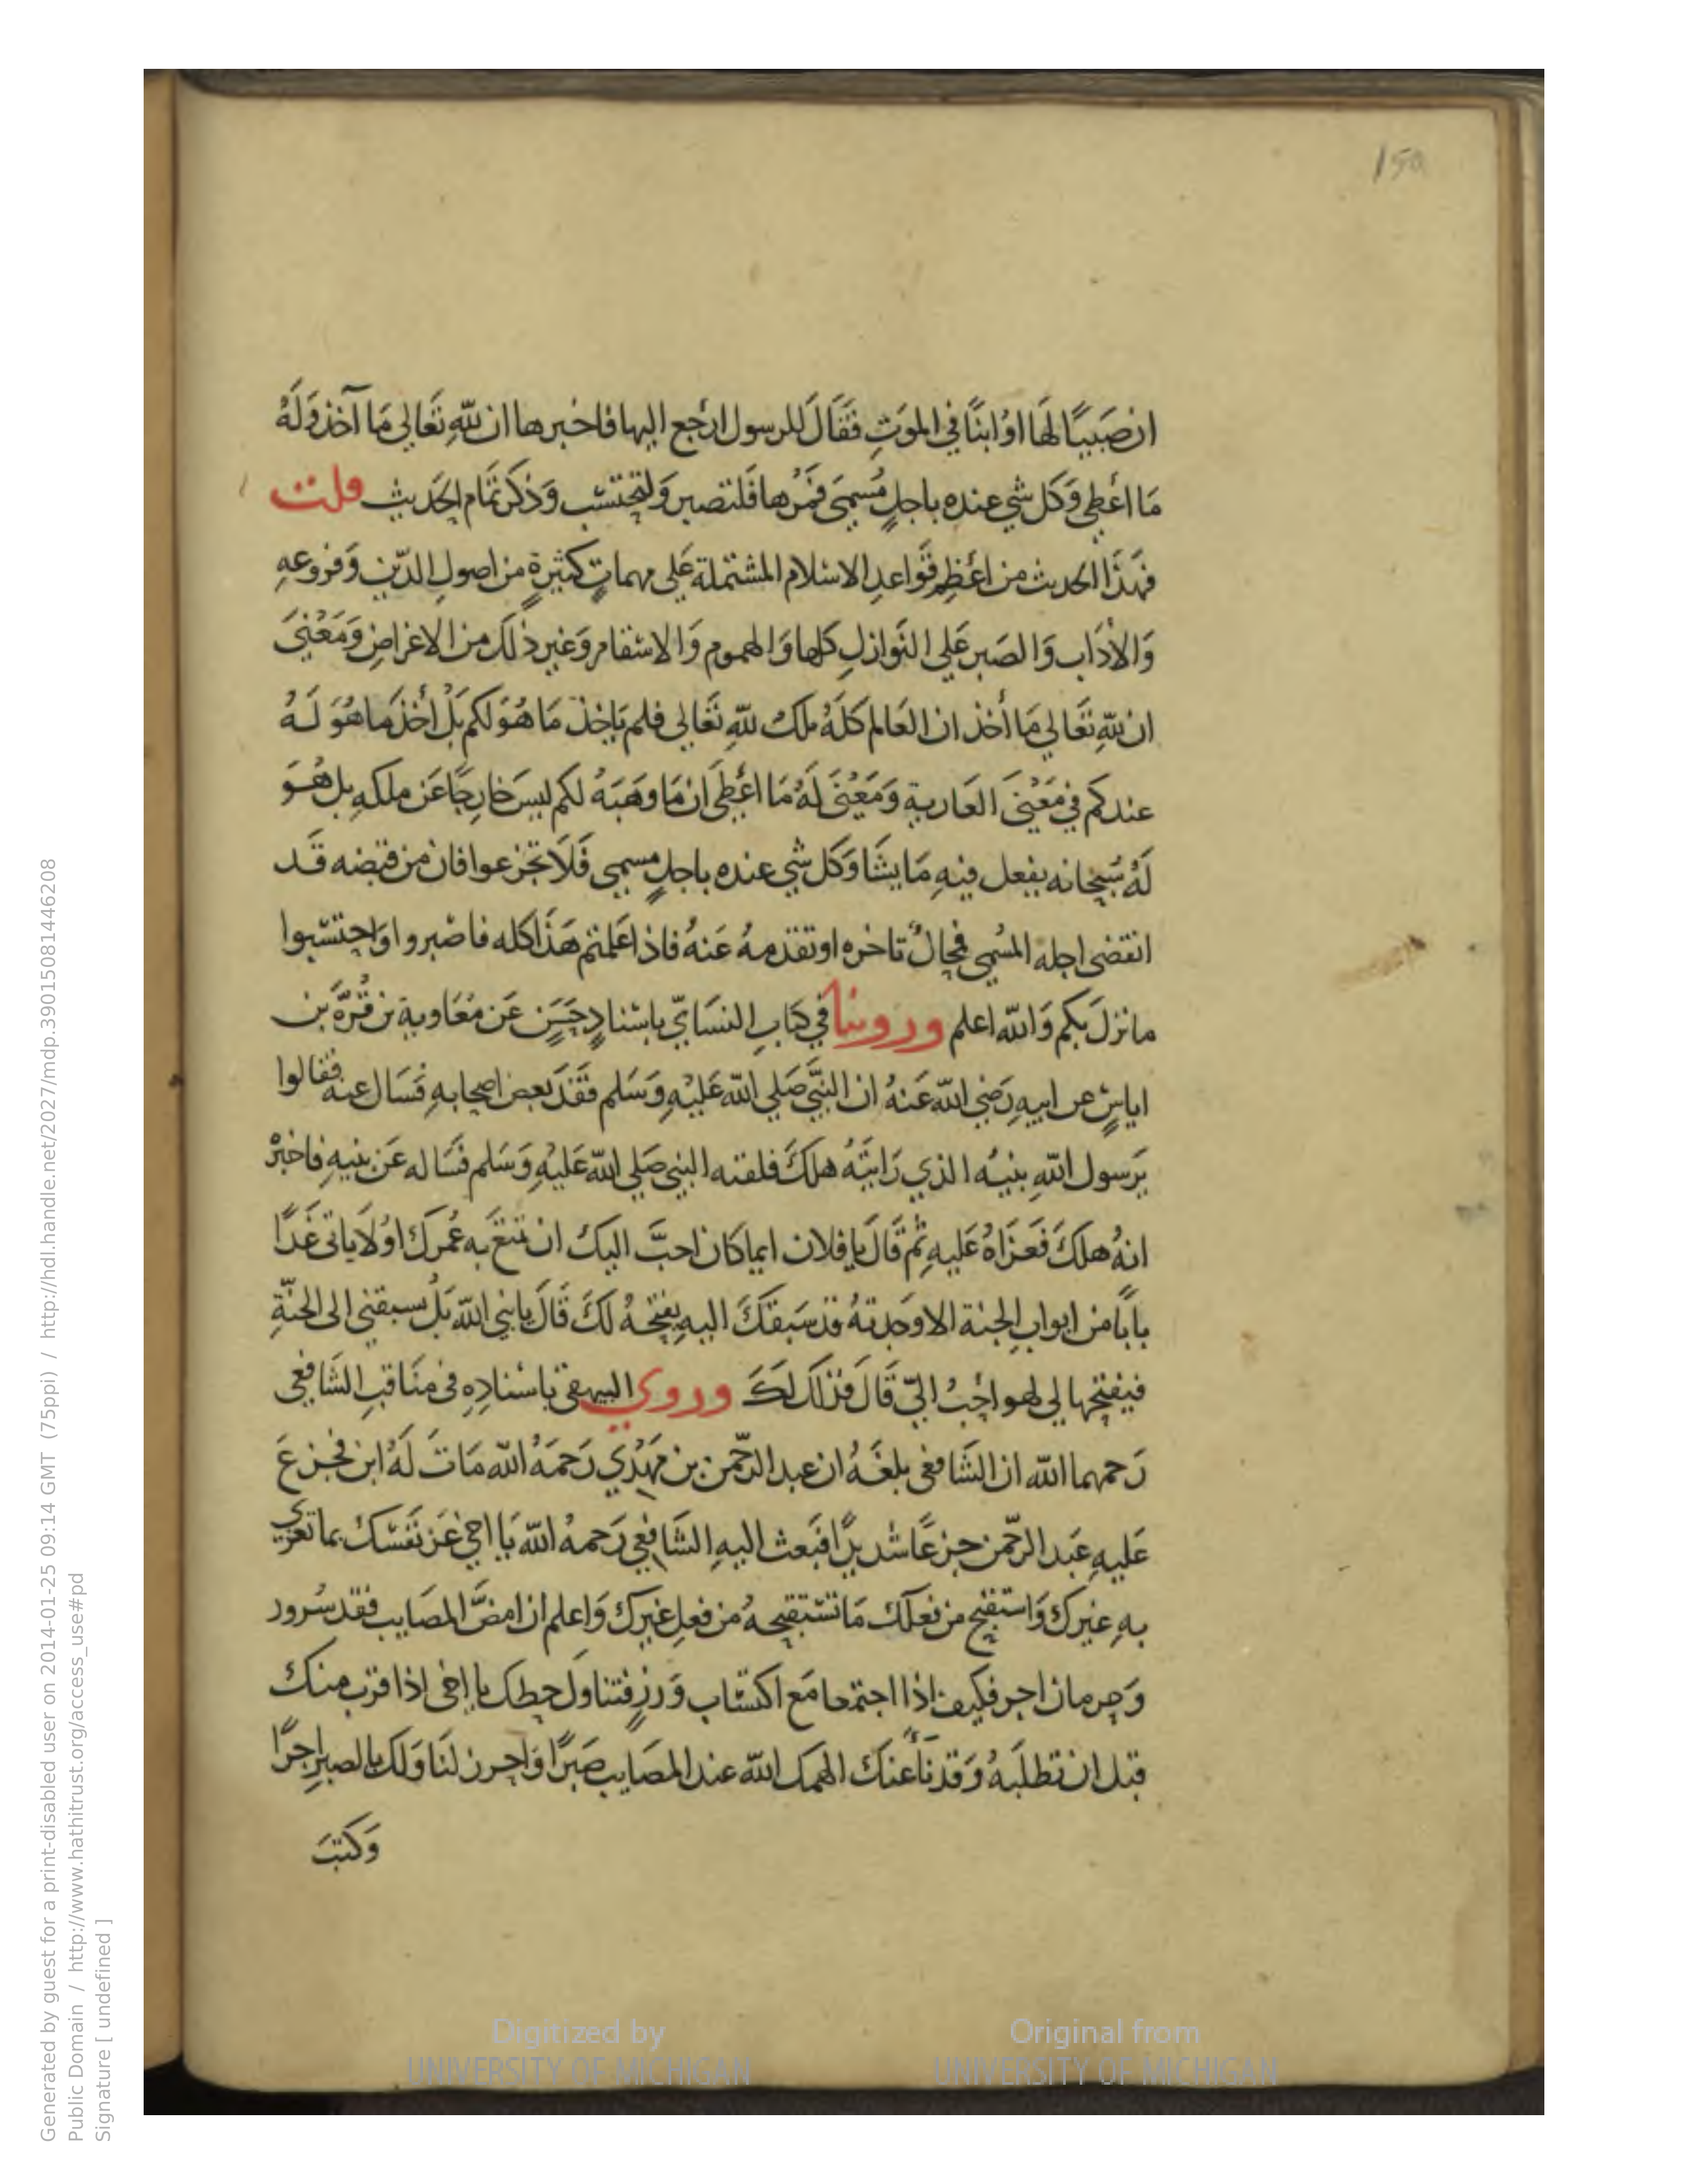 150
ان صَبيًّا لَهَا اوُ ابنًا في الموَتِ فَقَالَ للرسول ارجع اليها فاخبرها ان لله تَعَالي مَا آخذ وَلَهُ
مَا اعْطي وَكل شي عنده باجلٍ مُسمىَ فَمُرها فلتصبر وَلتحتسب وَذكرَ تمَام الحَديث قلت
فهَذَا الحديث من اعْظِم قَواعدِ الاسلام المشتملة عَلي مهماتٍ كثيرةٍ من اصولِ الدّين وَفروعهِ
وَالاْدَاب وَالصَبر عَلي النَوازلِ كلها وَالهموم وَالاسْقام وَغير ذلك من الاغراضِ وَمَعْنيَ
ان للهِ تَعَالي مَا أخذ ان العَالم كلَهُ ملك للهِ تَعَالي فلم يَاخذ مَا هُوَ لكم بَلْ أخذ ما هُوَ لَهُ
عندكم في مَعْنيَ العَارية وَمَعْنَي لَهُ مَا اعْطي ان مَا وهَبَهُ لكم ليسَ خارجًا عَن ملكهِ بل هُوَ
لَهُ سُبحانه يفعل فيهِ مَا يشَا وَكل شي عنده باجلٍ مسمي فَلَا تجزعوا فان من قبضه قَد
انقضى اجله المسُمي فمحالٌ تاخره او تقدمهُ عَنهُ فاذا عَلمتم هَذَا كله فاصْبروا وَاحتسبوا
ما نزلَ بكم وَالله اعلم وروينا في كتابِ النسَايّ باسْنادٍ حَسَنٍ عَن مُعَاوية بن قُرَّة بن
اياسٍ عن ابيهِ رَضي الله عَنهُ ان النبَّي صَلي الله عَليْهِ وَسَلم فَقَدَ بعض اصحابهِ فَسَال عنه فقالوا
يَرسول اللهِ بنيُه الذي رَايتَهُ هلكَ فلقته النبي صَلي الله عَليْهِ وَسَلم فسَاله عَن بنيهِ فاخبرْ
انهُ هلكَ فَعَزاهُ عَليهِ ثم قَالَ يا فلان ايما كان احبَّ اليك ان تمتعَ به عُمرك اوُلَا ياتى غَدًا
بابًا من ابوابِ الجنة الا وَجدتهُ قد سَبقكَ اليهِ يفتحهُ لكَ قَالَ يا نبي الله بَلْ يسبقني الى الجنّةِ
فيفتحها لي لهو احَبُ اليّ قَالَ فذلك لكَ وروي البيهقي باسْنادِهِ في منَاقبِ الشَافعي
رَحمهما الله ان الشَافعي بلغَهُ ان عبد الرحّمن بن مَهْدي رَحمَهُ الله مَاتَ لَهُ ابن فجزعَ
عَليهِ عَبد الرحّمن جزعًا شديدًا فبَعث اليهِ الشَافعي رَحمهُ الله يَا اخي عَزِ نَفسَك بما تعزي
بهِ غيرك وَاستقبح من فعلك مَا تستقبحهُ من فعلِ غيرك وَاعلم ان امضَّ المصَايب فقد سُرور
وَحرمان اجر فكيف اذا اجتمعا مَع اكتسَاب وَزرٍ فتناولْ حظك يا اخى اذا قربَ منك
قبل ان تطلبَهُ وَقد نَأ عنكَ الهمك الله عند المصَايب صَبرًا وَاحرز لنَا وَلك بالصبرِ اجرًا
وَكتبَ
Generated by guest for a print-disabled user on 2014-01-25 09:14 GMT (75ppi) / http://hdl.handle.net/2027/mdp.39015081446208
Public Domain / http://www.hathitrust.org/access_use#pd
Signature [ undefined ]
Digitized by
UNIVERSITY OF MICHIGAN
Original from
UNIVERSITY OF MICHIGAN